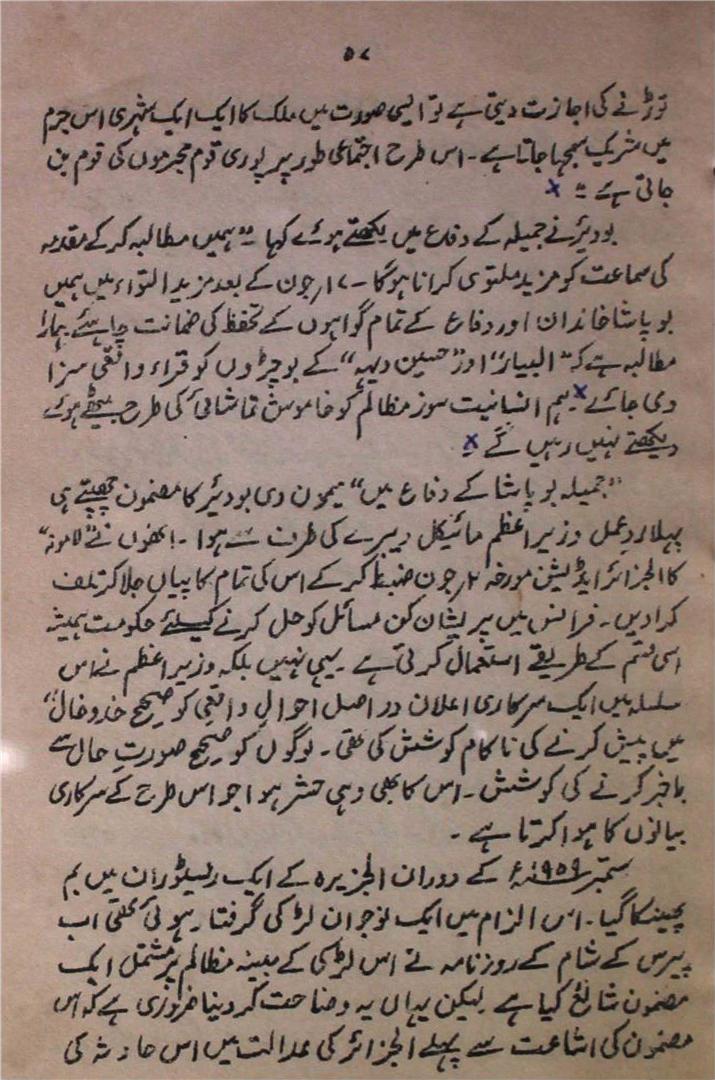 ۵۷
توڑنے کی اجازت دیتی ہے تو ایسی صورت میں ملک کا ایک ایک شہری اس جرم
میں شریک سمجھا جاتا ہے۔ اس طرح اجتماعی طور پر پوری قوم مجرموں کی قوم بن
جاتی ہے"
بودیئر نے جمیلہ کے دفاع میں لکھتے ہوئے کہا "ہمیں مطالبہ کر کے مقدمہ
کی سماعت کو مزید ملتوی کرانا ہوگا۔ ۱۷ر جون کے بعد مزید التواء میں ہمیں
بوپاشا خاندان اور دفاع کے تمام گواہوں کے تحفظ کی ضمانت چاہئے ہمارا
مطالبہ ہے کہ "البیار" اور "حسین دیہہ" کے بوچڑوں کو قراء واقعی سزا
دی جائے۔ ہم انسانیت سوز مظالم کو خاموش تماشائی کی طرح بیٹھے ہوئے
دیکھتے نہیں رہیں گے"
"جمیلہ بوپاشا کے دفاع میں" سیمون دی بودیئر کا مضمون چھپتے ہی
پہلا ردِعمل وزیراعظم مائیکل دیبرے کی طرف سے ہوا۔ انھوں نے "لاموند"
کا الجزائر ایڈیشن مورخہ ۲ر جون ضبط کر کے اس کی تمام کاپیاں جلا کر تلف
کرادیں۔ فرانس میں پریشان کن مسائل کو حل کرنے کیلئے حکومت ہمیشہ
اسی قسم کے طریقے استعمال کرتی ہے۔ یہی نہیں بلکہ وزیراعظم نے اس
سلسلہ میں ایک سرکاری اعلان در اصل احوالِ واقعی کو "صحیح خدوخال"
میں پیش کرنے کی ناکام کوشش کی تھی۔ لوگوں کو صحیح صورتِ حال سے
باخبر کرنے کی کوشش۔ اس کا بھی وہی حشر ہوا جو اس طرح کے سرکاری
بیانوں کا ہوا کرتا ہے۔
ستمبر ۱۹۵۹ء کے دوران الجزیرہ کے ایک ریسٹوران میں بم
پھینکا گیا۔ اس الزام میں ایک نوجوان لڑکی گرفتار ہوئی تھی اب
پیرس کے شام کے روزنامہ نے اس لڑکی کے مبینہ مظالم پر مشتمل ایک
مضمون شائع کیا ہے لیکن یہاں یہ وضاحت کر دینا ضروری ہے کہ اس
مضمون کی اشاعت سے پہلے الجزائر کی عدالت میں اس حادثہ کی